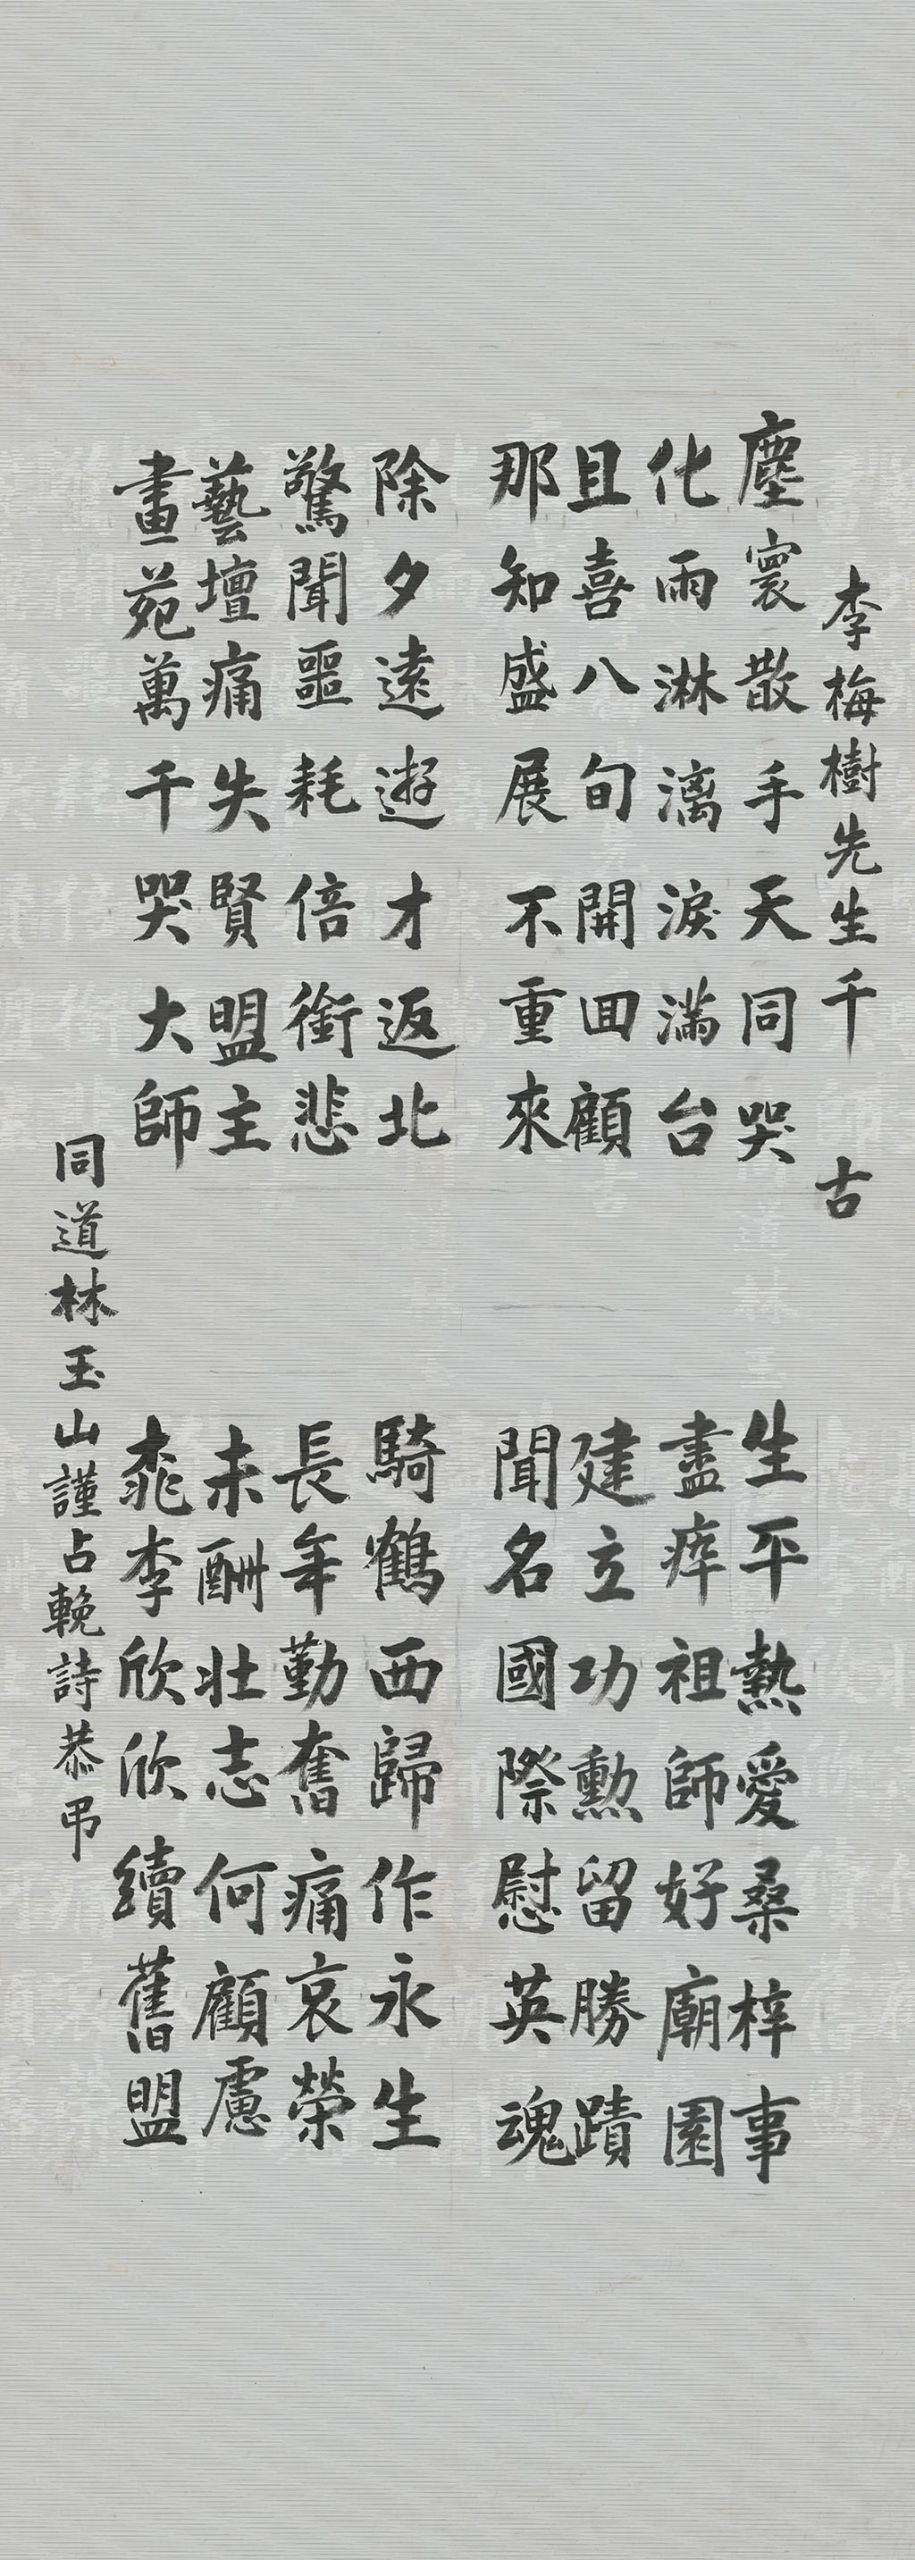 李梅樹先生千古
塵寰散手天同哭
化雨淋漓淚滿台
且喜八旬開回顧
那知盛展不重來
除夕遠遊才返北
驚聞噩耗倍銜悲
藝壇痛失賢盟主
畫苑萬千哭大師
生平熱愛桑梓事
盡瘁祖師好廟園
建立功勳留勝蹟
聞名國際慰英魂
騎鶴西歸作永生
長年勤奮痛哀榮
未酬壯志何顧慮
桃李欣欣續舊盟
同道林玉山謹占輓詩恭吊